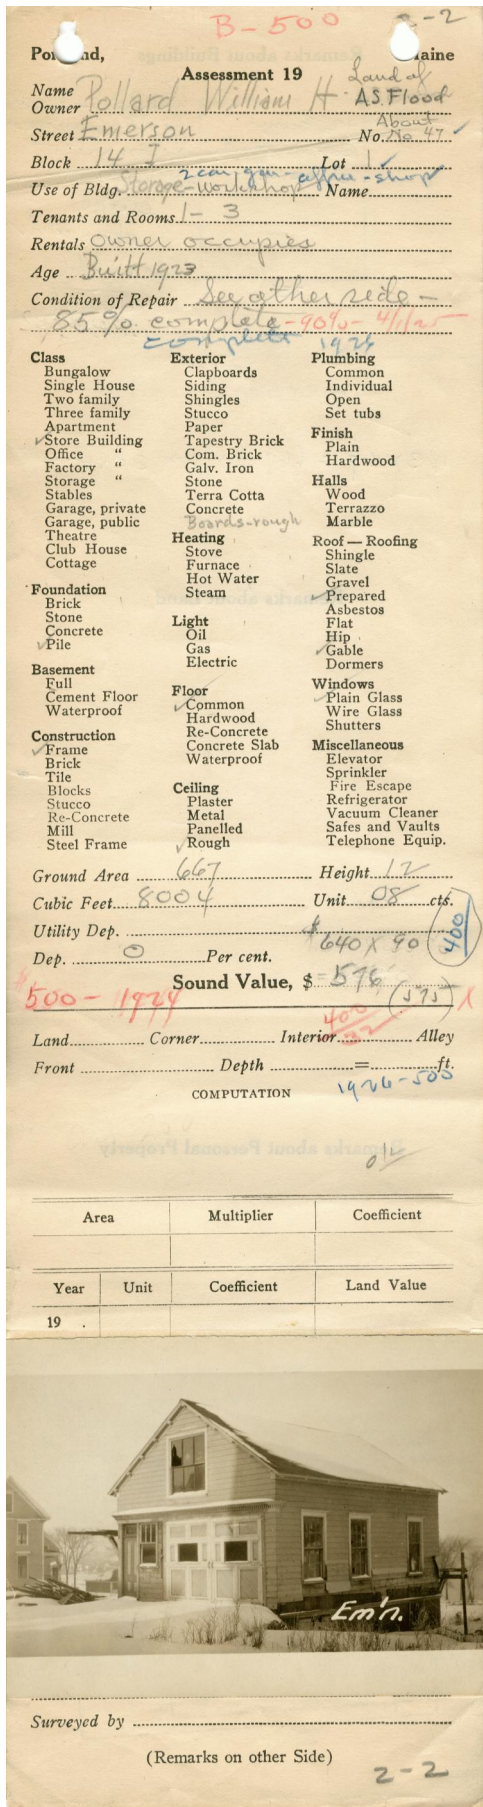 B-500
2-2
Portland, Maine
Assessment 19
Land of
Name
Owner Pollard William H A.S. Flood
About
Street Emerson No. No 47
Block 14 I Lot 1
2 car gar - office - shop
Use of Bldg. Storage-workshop Name
Tenants and Rooms 1 - 3
Rentals Owner occupies
Age Built 1923
Condition of Repair See other side -
85% complete - 90% - 4/1/25
complete 1926
Class
Bungalow
Single House
Two family
Three family
Apartment
Store Building
Office "
Factory "
Storage "
Stables
Garage, private
Garage, public
Theatre
Club House
Cottage
Foundation
Brick
Stone
Concrete
Pile
Basement
Full
Cement Floor
Waterproof
Construction
Frame
Brick
Tile
Blocks
Stucco
Re-Concrete
Mill
Steel Frame
Exterior
Clapboards
Siding
Shingles
Stucco
Paper
Tapestry Brick
Com. Brick
Galv. Iron
Stone
Terra Cotta
Concrete
Boards-rough
Heating
Stove
Furnace
Hot Water
Steam
Light
Oil
Gas
Electric
Floor
Common
Hardwood
Re-Concrete
Concrete Slab
Waterproof
Ceiling
Plaster
Metal
Panelled
Rough
Plumbing
Common
Individual
Open
Set tubs
Finish
Plain
Hardwood
Halls
Wood
Terrazzo
Marble
Roof — Roofing
Shingle
Slate
Gravel
Prepared
Asbestos
Flat
Hip
Gable
Dormers
Windows
Plain Glass
Wire Glass
Shutters
Miscellaneous
Elevator
Sprinkler
Fire Escape
Refrigerator
Vacuum Cleaner
Safes and Vaults
Telephone Equip.
Ground Area 667 Height 12
Cubic Feet 8004 Unit 08 cts.
Utility Dep.
$640 X 90 400
Dep. 0 Per cent.
Sound Value, $ 576
$500 - 1924 (575) X
400
32
Land Corner Interior Alley
Front Depth = ft.
1926-500
COMPUTATION
Area Multiplier Coefficient
Year Unit Coefficient Land Value
19 .
Em'n.
Surveyed by
(Remarks on other Side)
2-2